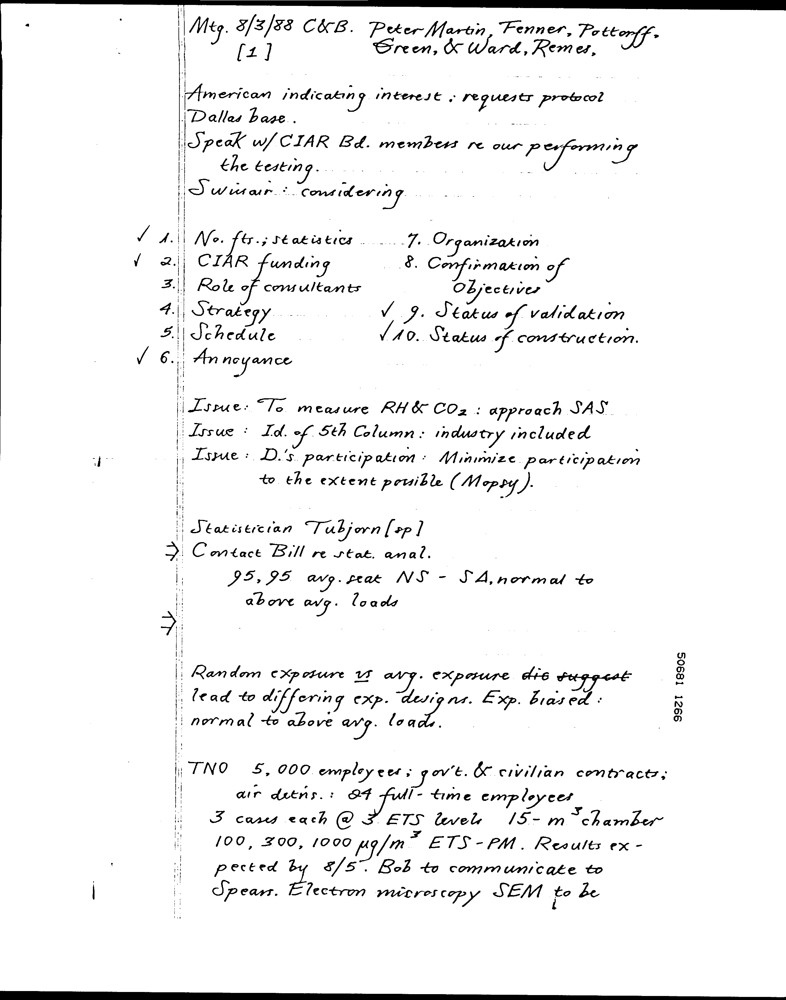 Mtg. 8/3/88 C&B. Peter Martin, Fenner, Pottorff,
[1] Green, & Ward, Remes.
American indicating interest; requests protocol
Dallas base.
Speak w/ CIAR Bd. members re our performing
the testing.
Swissair: considering
✓ 1. No. fts.; statistics
✓ 2. CIAR funding
3. Role of consultants
4. Strategy
5. Schedule
✓ 6. Annoyance
7. Organization
8. Confirmation of
Objectives
✓ 9. Status of validation
✓ 10. Status of construction.
Issue: To measure RH & CO2: approach SAS
Issue: Id. of 5th Column: industry included
Issue: D.'s participation: Minimize participation
to the extent possible (Mopsy).
Statistician Tubjorn [sp]
⇒ Contact Bill re stat. anal.
95, 95 avg. seat NS - SA, normal to
above avg. loads
⇒
Random exposure vs avg. exposure dis suggest
lead to differing exp. designs. Exp. biased:
normal to above avg. loads.
TNO 5,000 employees; gov't. & civilian contracts;
air detns.: 84 full-time employees
3 cases each @ 3 ETS levels 15-m3 chamber
100, 300, 1000 µg/m3 ETS-PM. Results ex-
pected by 8/5. Bob to communicate to
Spears. Electron microscopy SEM to be
50681 1266